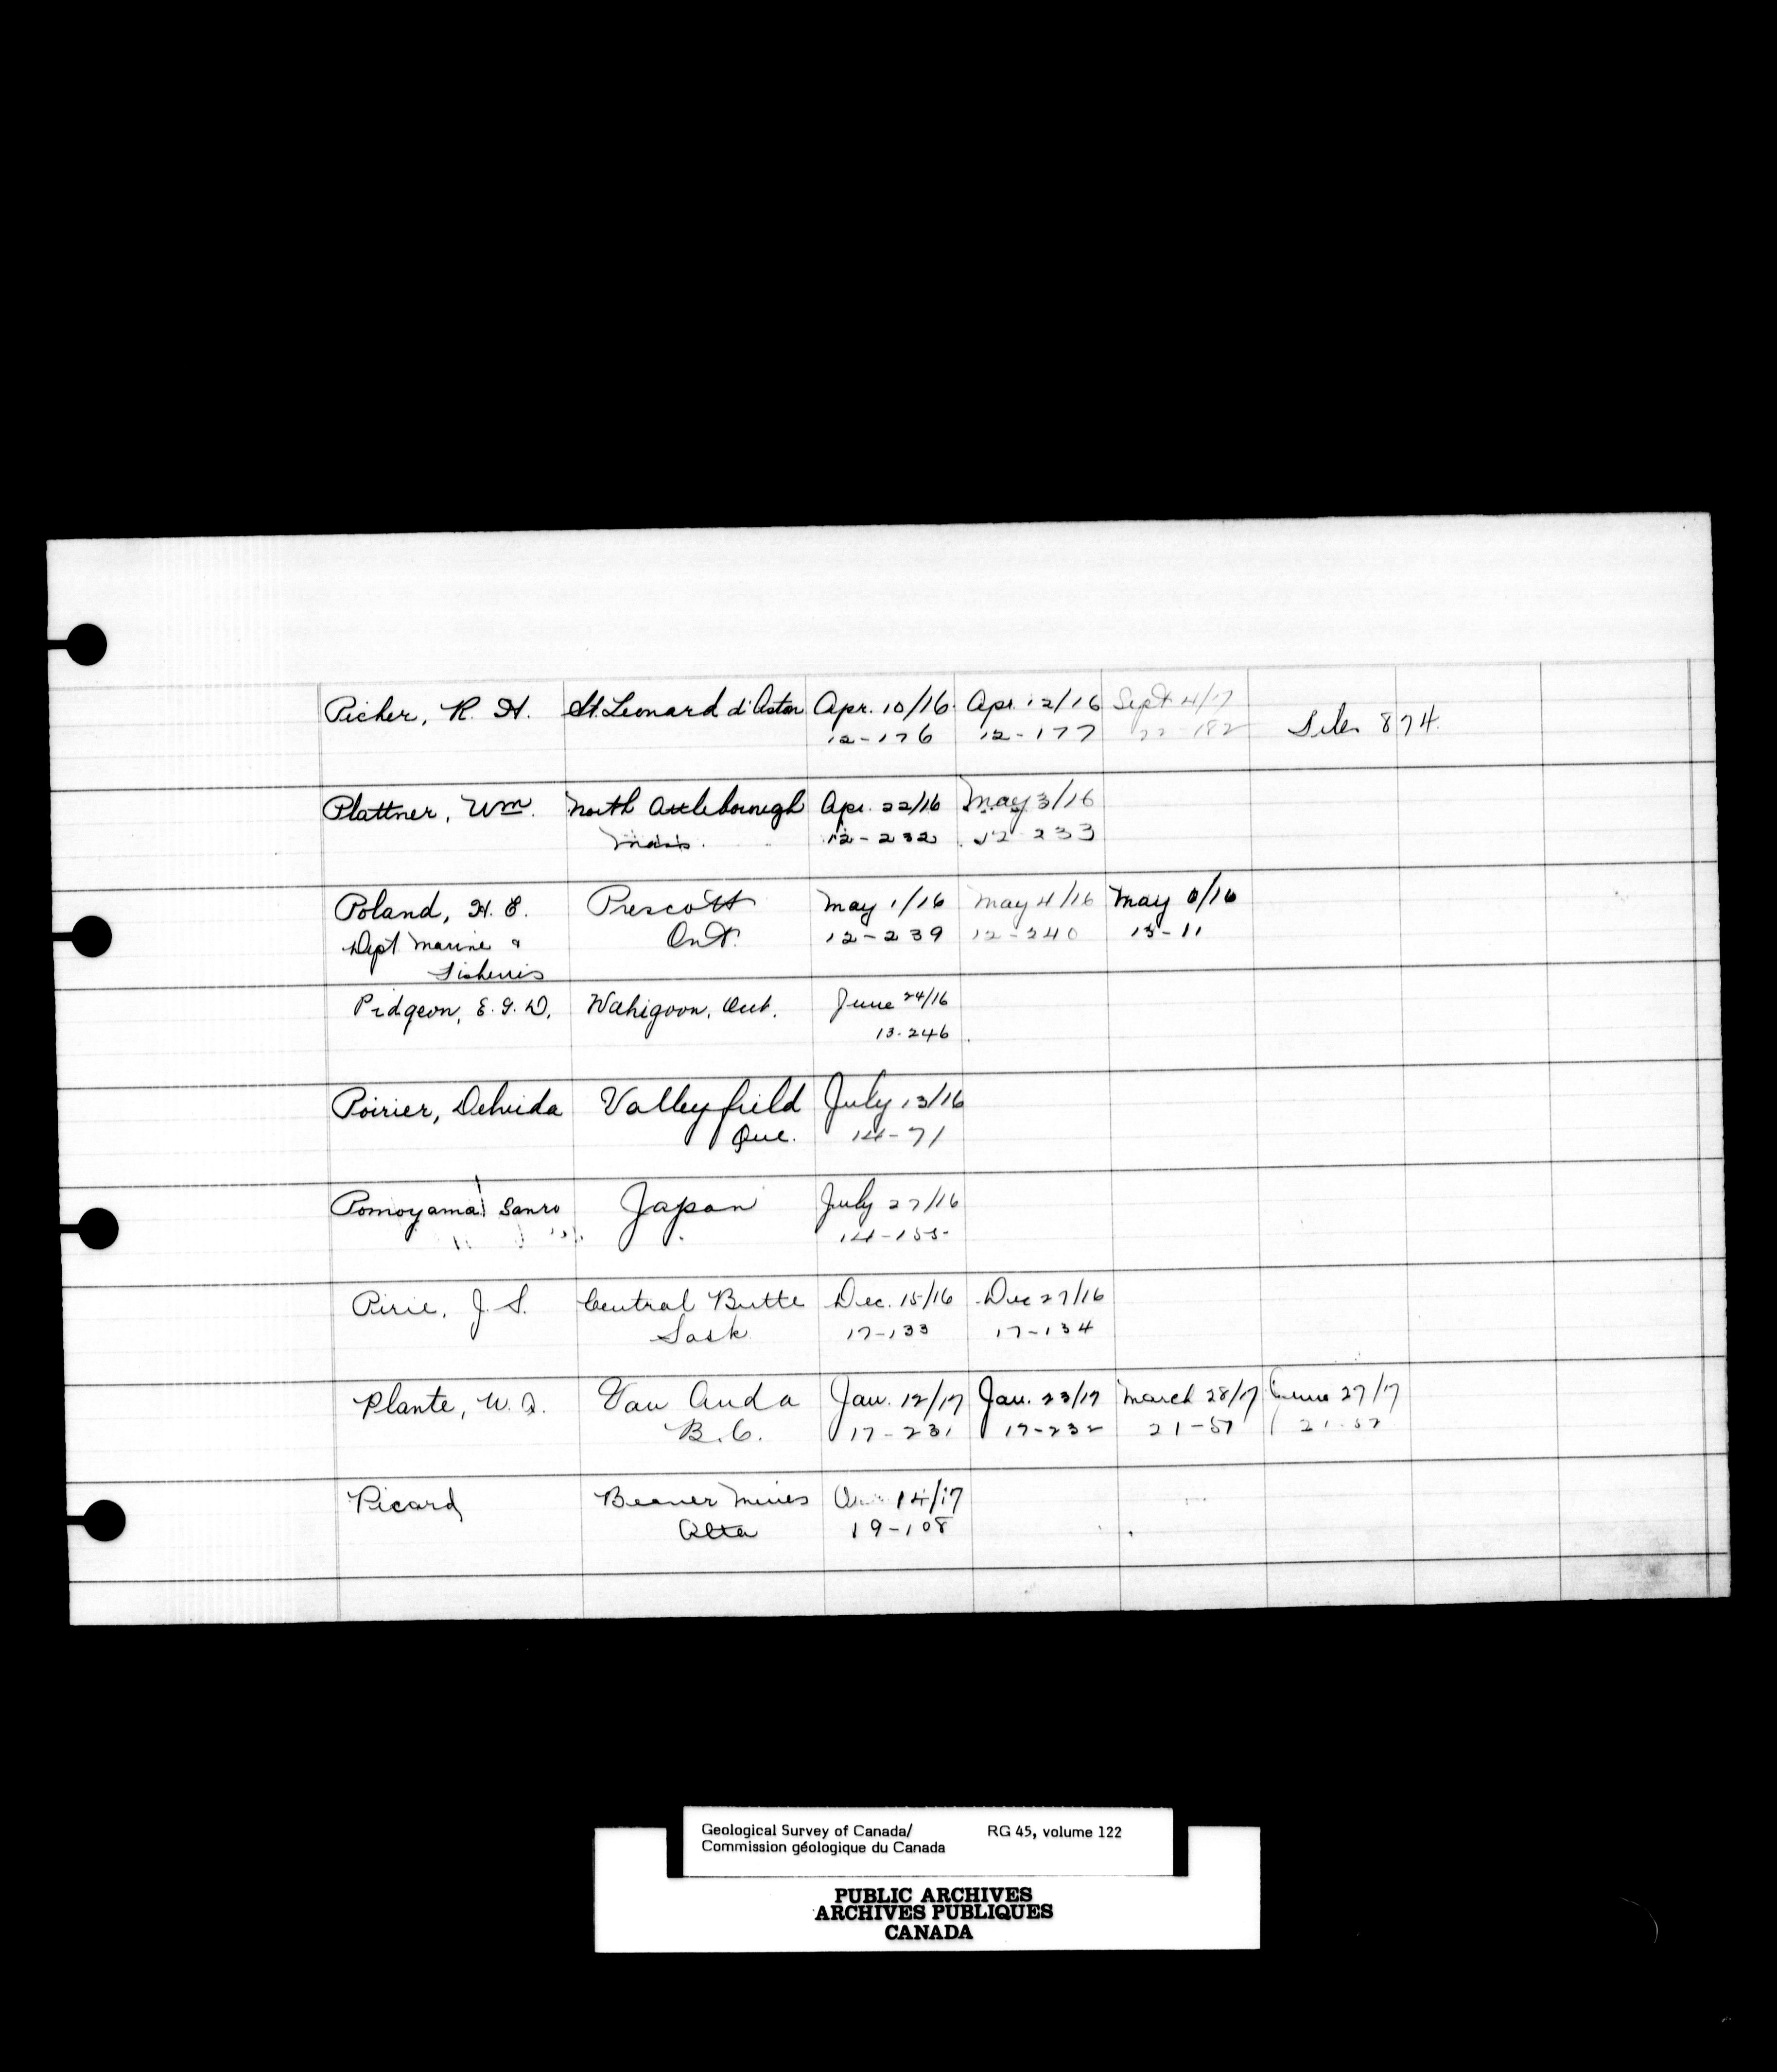 Picher, R. H. St. Leonard d'Aston Apr. 10/16 Apr. 12/16 Sept 4/17
12-176 12-177 22-182 874.
Plattner, Wm. North Attleborough Apr. 22/16 May 3/16
Mass. 12-232 12-233
Poland, H. E. Prescott May 1/16 May 4/16 May 6/16
Dept. Marine & Ont. 12-239 12-240 13-11
Fisheries
Pidgeon, E. G. D. Wahigoon, Ont. June 24/16
13-246
Poirier, Delvida Valleyfield July 13/16
Que. 14-71
Pomoyama Sanro Japan July 27/16
14-155
Pirie, J. S. Central Butte Dec. 15/16 Dec 27/16
Sask 17-133 17-134
Plante, W. A. Van Anda Jan. 12/17 Jan. 23/17 March 28/17 June 27/17
B.C. 17-231 17-232 21-57 21-57
Picard Beaver Mines 14/17
Alta 19-108
Geological Survey of Canada/ RG 45, volume 122
Commission géologique du Canada
PUBLIC ARCHIVES
ARCHIVES PUBLIQUES
CANADA